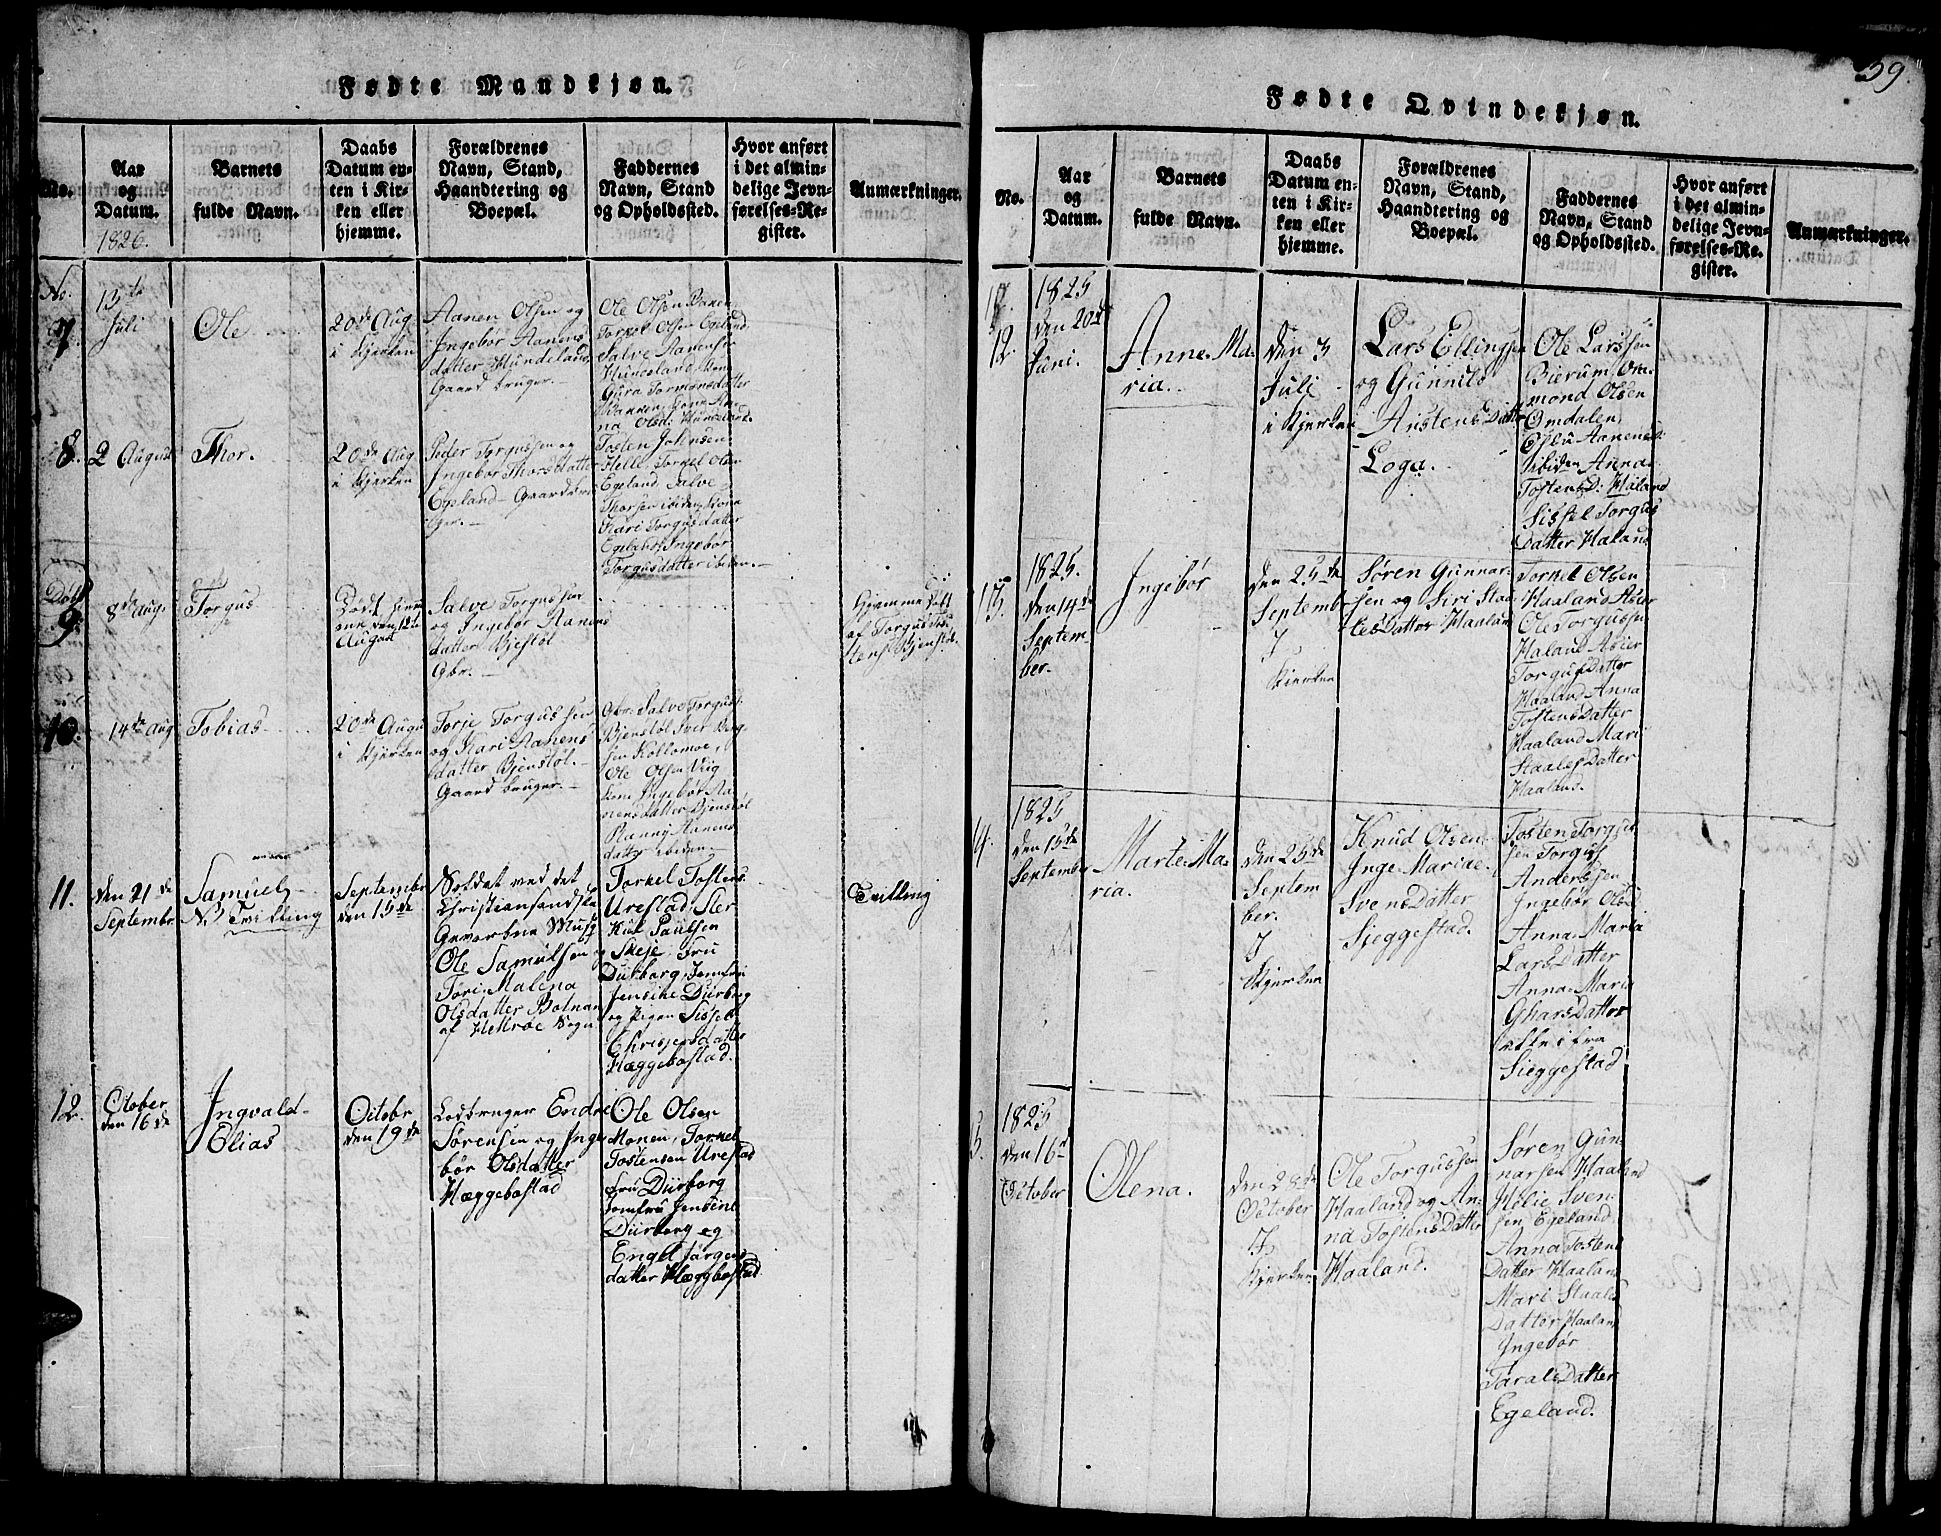 39.
Fødte Mandkjøn.
No.
Aar
og
Datum.
1826.
Barnets
fulde Navn.
Daabs
Datum en-
ten i Kir-
ken eller
hjemme.
Forældrenes
Navn, Stand,
Haandtering og
Boepæl.
Faddernes
Navn, Stand
og Opholdssted.
Hvor anført
i det almin-
delige Jevn-
førelses-Re-
gister.
Anmærkninger.
No.
7
13de
Juli
Ole
20de Aug
i Kjerken
Aanen Olsen og
Ingebør Aanens
datter Hundeland
Gaard bruger.
Ole Olsen
Torkel Olsen Egeland
Salve Aanensen
8.
2 August
Thor.
20de Aug
i Kjerken
Peder Torgussen og
Ingebør Thorsdatter
Egeland
Tosten
Helle Torkel Olsen
Egeland Salve
Thorsen ibiden
Kari Torgusdatter
Egeland Ingebør
Torgusdatter ibiden.
Død
9.
8de Aug.
Torgus
den 12te
August
Salve Torgussen
og Ingebør Aanens
datter Bjestøl
Gbr.
Hjemme døbt
af Torgus
10.
14de Aug
Tobias
20de Augu
i Kjerken
Torje Torgussen
og Kari Aanens
datter Bjenstøl.
Gaard bruger.
Gbr. Salve Torgus
Bjenstøl Iver
sen Kollomoe,
Ole Olsen
Ingebør Aa
nensdatter Bjenstøl
Ranny Aanens
datter ibiden.
11.
den 21de
Septembr
Samuel
Tvilling
Septembr
den 15de
Soldat ved det
Christiansandske
Gevorbne Musq
Ole Samuelsen og
Tori Malena
Olsdatter Botnan
af Hettrøe Sogn
Torkel Tostens
Urestad
Paulsen
Skeje Fru
Dürborg, Jomfru
Jensine Dürborg
og Pigen Sissel
datter
Hæggebostad.
Tvilling
12.
October
den 16de
Ingvald
Elias
Octobr
den 19de
Ledbruger Endre
Sørensen og Inge
bør Olsdatter
Hæggebostad
Ole Olsen
Monen, Torkel
Tostensen Urestad
Fru Dürborg
Jomfru Jensine
Dürborg og
Engel Jørgens
datter Hæggbostad
Fødte Qvindekjøn.
No.
Aar
og
Datum.
Barnets
fulde Navn.
Daabs
Datum en-
ten i Kir-
ken eller
hjemme.
Forældrenes
Navn, Stand,
Haandtering og
Boepæl.
Faddernes
Navn, Stand
og Opholdssted.
Hvor anført
i det almin-
delige Jevn-
førelses-Re-
gister.
Anmærkninger.
12.
1825
den 20de
Juni.
Anne Ma
ria.
den 3
Juli
i Kjerken
Lars Ellingsen
og Gunnild
Aistens Datter
Loga.
Ole Larssen
Bierum, Om
mond Olsen
Omdalen,
ibiden Anna
Tostens D: Haland
Sissel Torgus
Datter Haland
13.
1825.
den 14de
Septem-
ber.
Ingebør
den 25de
Septembr
I
Kierken
Søren Gunnar-
sen og Siri Staa
les Datter Haaland
Torkel Olsen
Haaland
Ole Torgussen
Haland
Torgus Datter
Haaland Anna
Tostens Datter
Haaland Mari
Staales Datter
Haaland.
4.
1825
den 15de
September
Marte Ma
ria.
den 25de
Septem
ber.
I
Kjerken
Knud Olsen
Inge Mariae
Svens Datter
Sjeggestad.
Tosten Torgus
sen Torgus
Anderssen
Ingebør Ols D
Anna Maria
Lars Datter
Anna Maria
Datter
alle ifra
Sieggestad
5.
1825
den 16de
October
Olena.
den 28de
October
I
Kjerken
Ole Torgussen
Haaland og An
na Tostens Datter
Haaland.
Søren Gun
narsen Haaland
Helie Sven
sen Egeland
Anna Tostens
Datter Haaland
Mari Staals
Datter Haaland
Ingebør
Tarals Datter
Egeland.